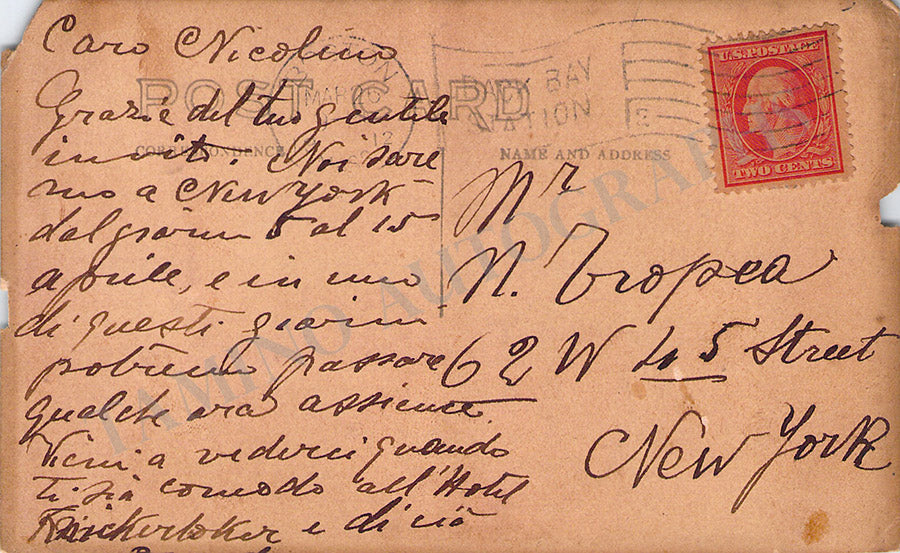 Caro Nicolino
POST CARD
CORRESPONDENCE
NAME AND ADDRESS
Grazie del tuo gentile
invito. Noi sare
mo a New York
dal giorno 5 al 15
aprile, e in uno
di questi giorni
potremo passare
qualche ora assieme
Vieni a vederci quando
ti sia comodo all'Hotel
Knickerboker e di ciò
MAR
BACK BAY
STATION
U.S. POSTAGE
TWO CENTS
Mr
N. Tropea
62 W 45 Street
New York
TAMINO AUTOGRAPHS